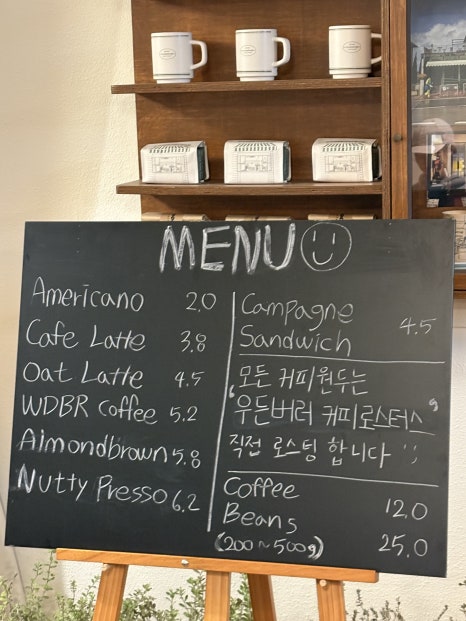 MENU
Americano 2.0
Cafe Latte 3.8
Oat Latte 4.5
WDBR Coffee 5.2
Almondbrown 5.8
Nutty Presso 6.2
Campagne
Sandwich 4.5
"모든 커피원두는
우든버러 커피로스터스"
직접 로스팅 합니다
Coffee
Beans 12.0
(200~500g) 25.0